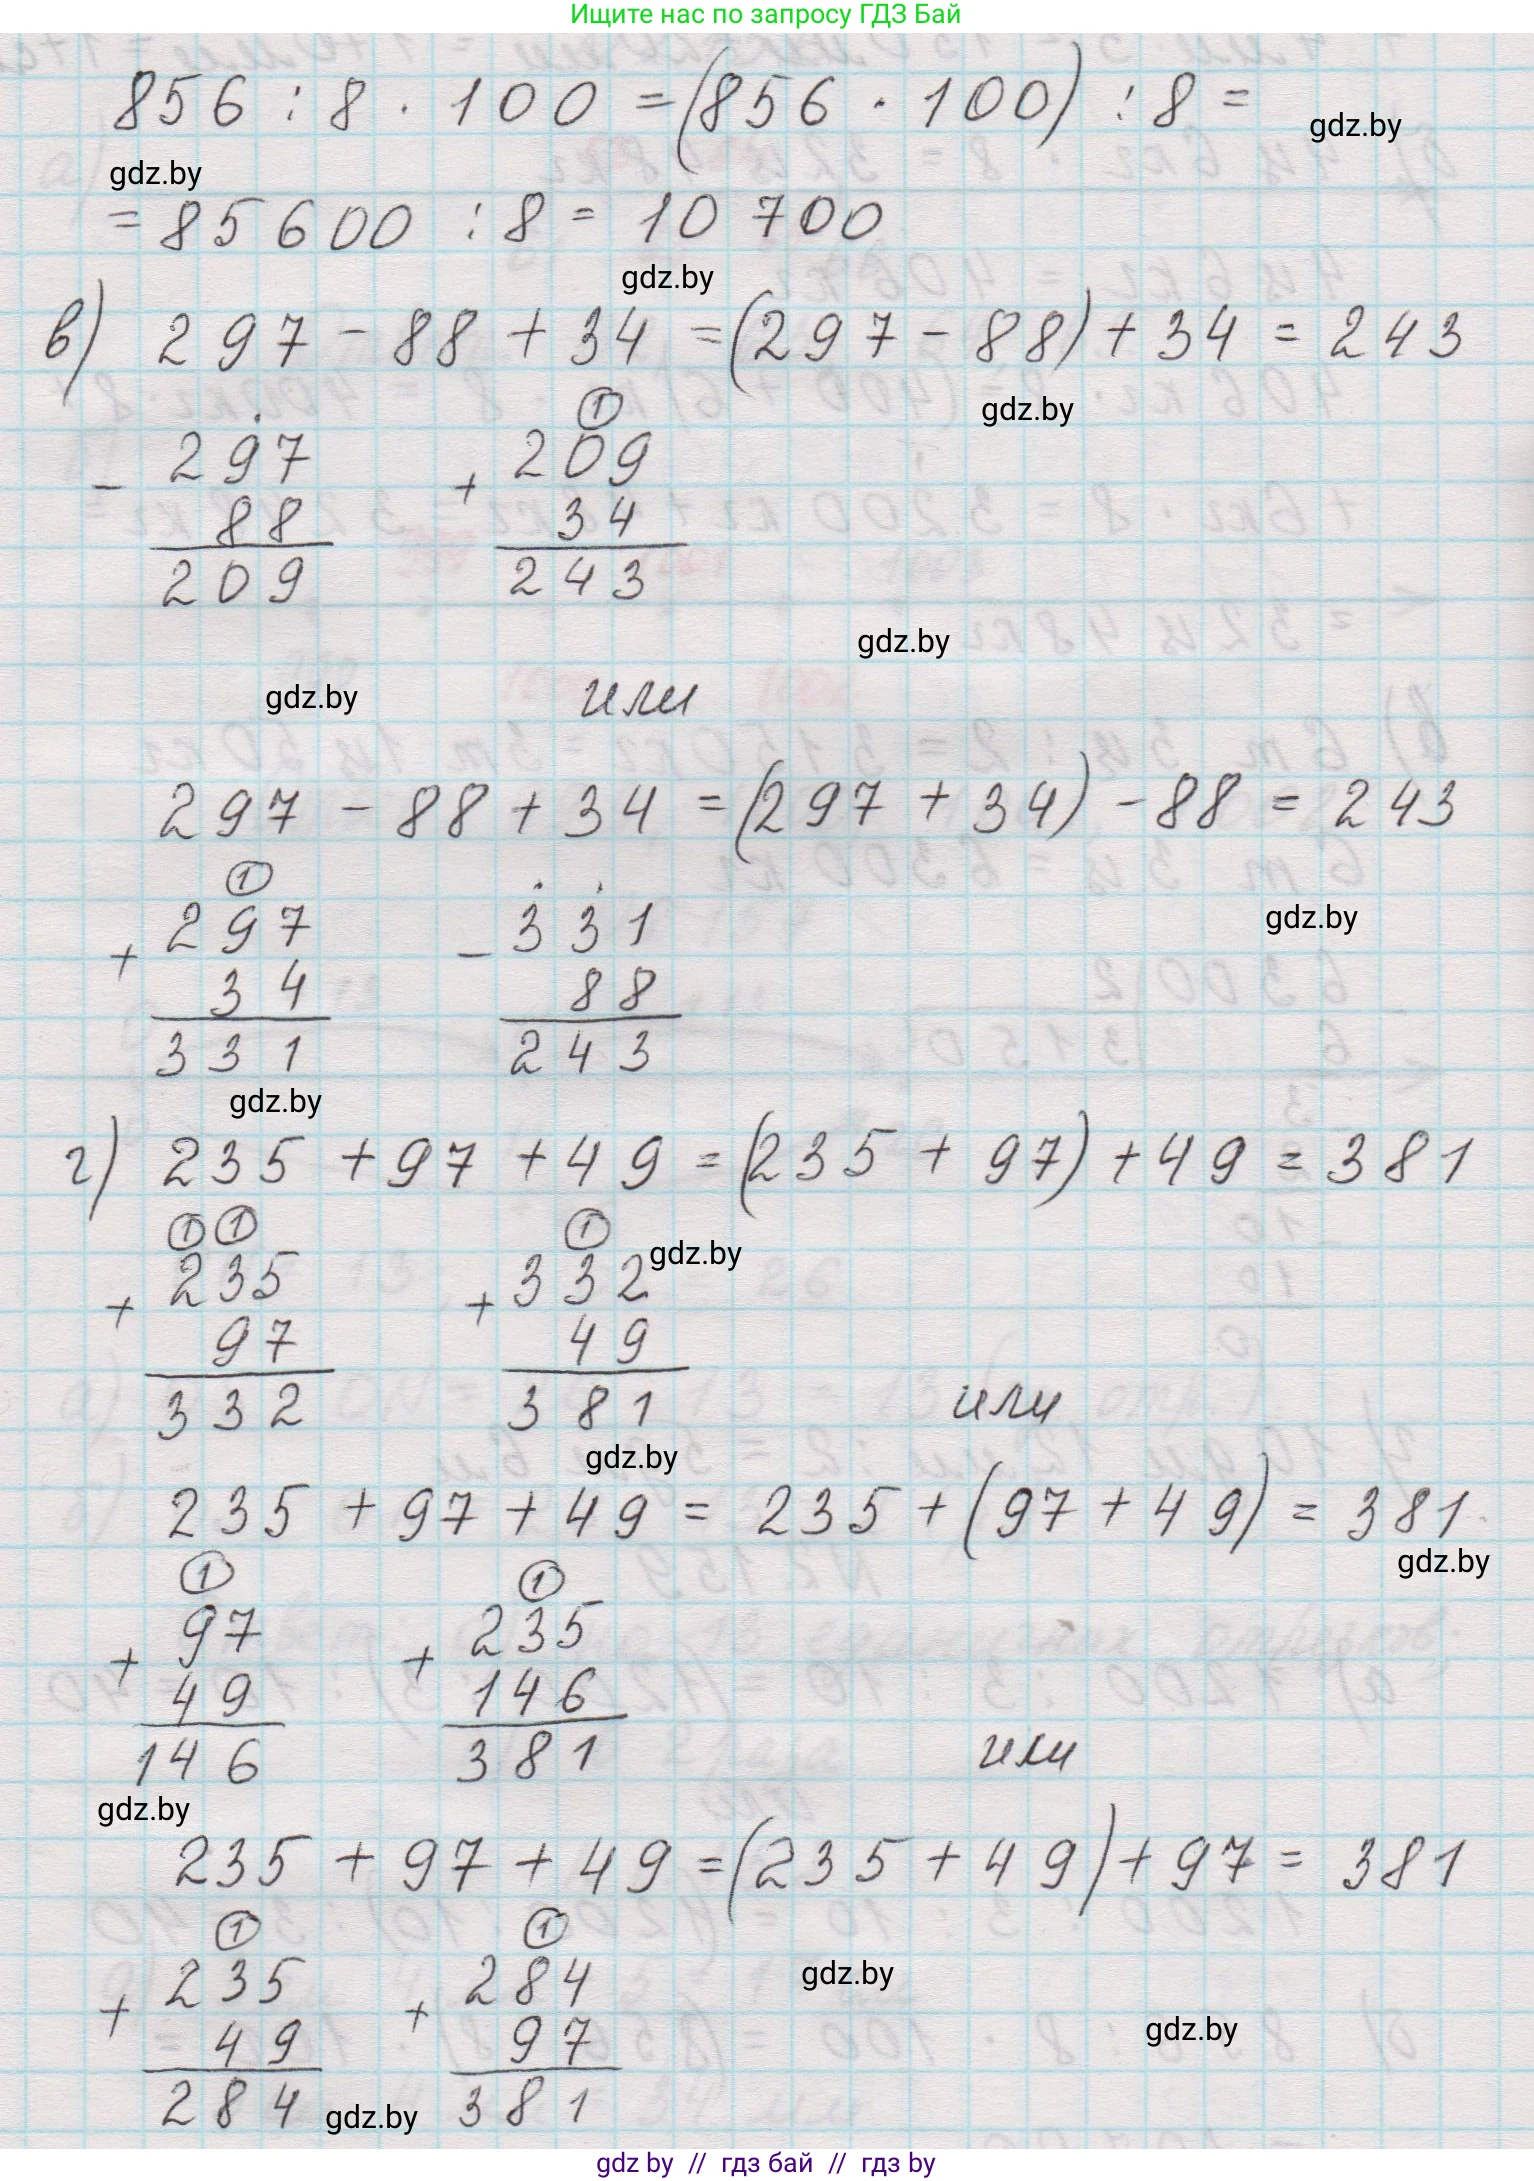 Ищите нас по запросу ГДЗ Бай
856 : 8 · 100 = (856 · 100) : 8 =
gdz.by
gdz.by
= 85600 : 8 = 10 700
gdz.by
в) 297 - 88 + 34 = (297 - 88) + 34 = 243
gdz.by
1
- 297 + 209
88 34
209 243
gdz.by
gdz.by
или
297 - 88 + 34 = (297 + 34) - 88 = 243
1
+ 297 - 331
gdz.by
34 88
331 243
gdz.by
г) 235 + 97 + 49 = (235 + 97) + 49 = 381
1 1 1
gdz.by
+ 235 + 332
97 49
332 381
или
gdz.by
235 + 97 + 49 = 235 + (97 + 49) = 381
gdz.by
1 1
+ 97 + 235
49 146
146 381
или
gdz.by
235 + 97 + 49 = (235 + 49) + 97 = 381
1 1
+ 235 + 284
gdz.by
49 97
gdz.by
284 381
gdz.by
gdz by // гдз бай // гдз by